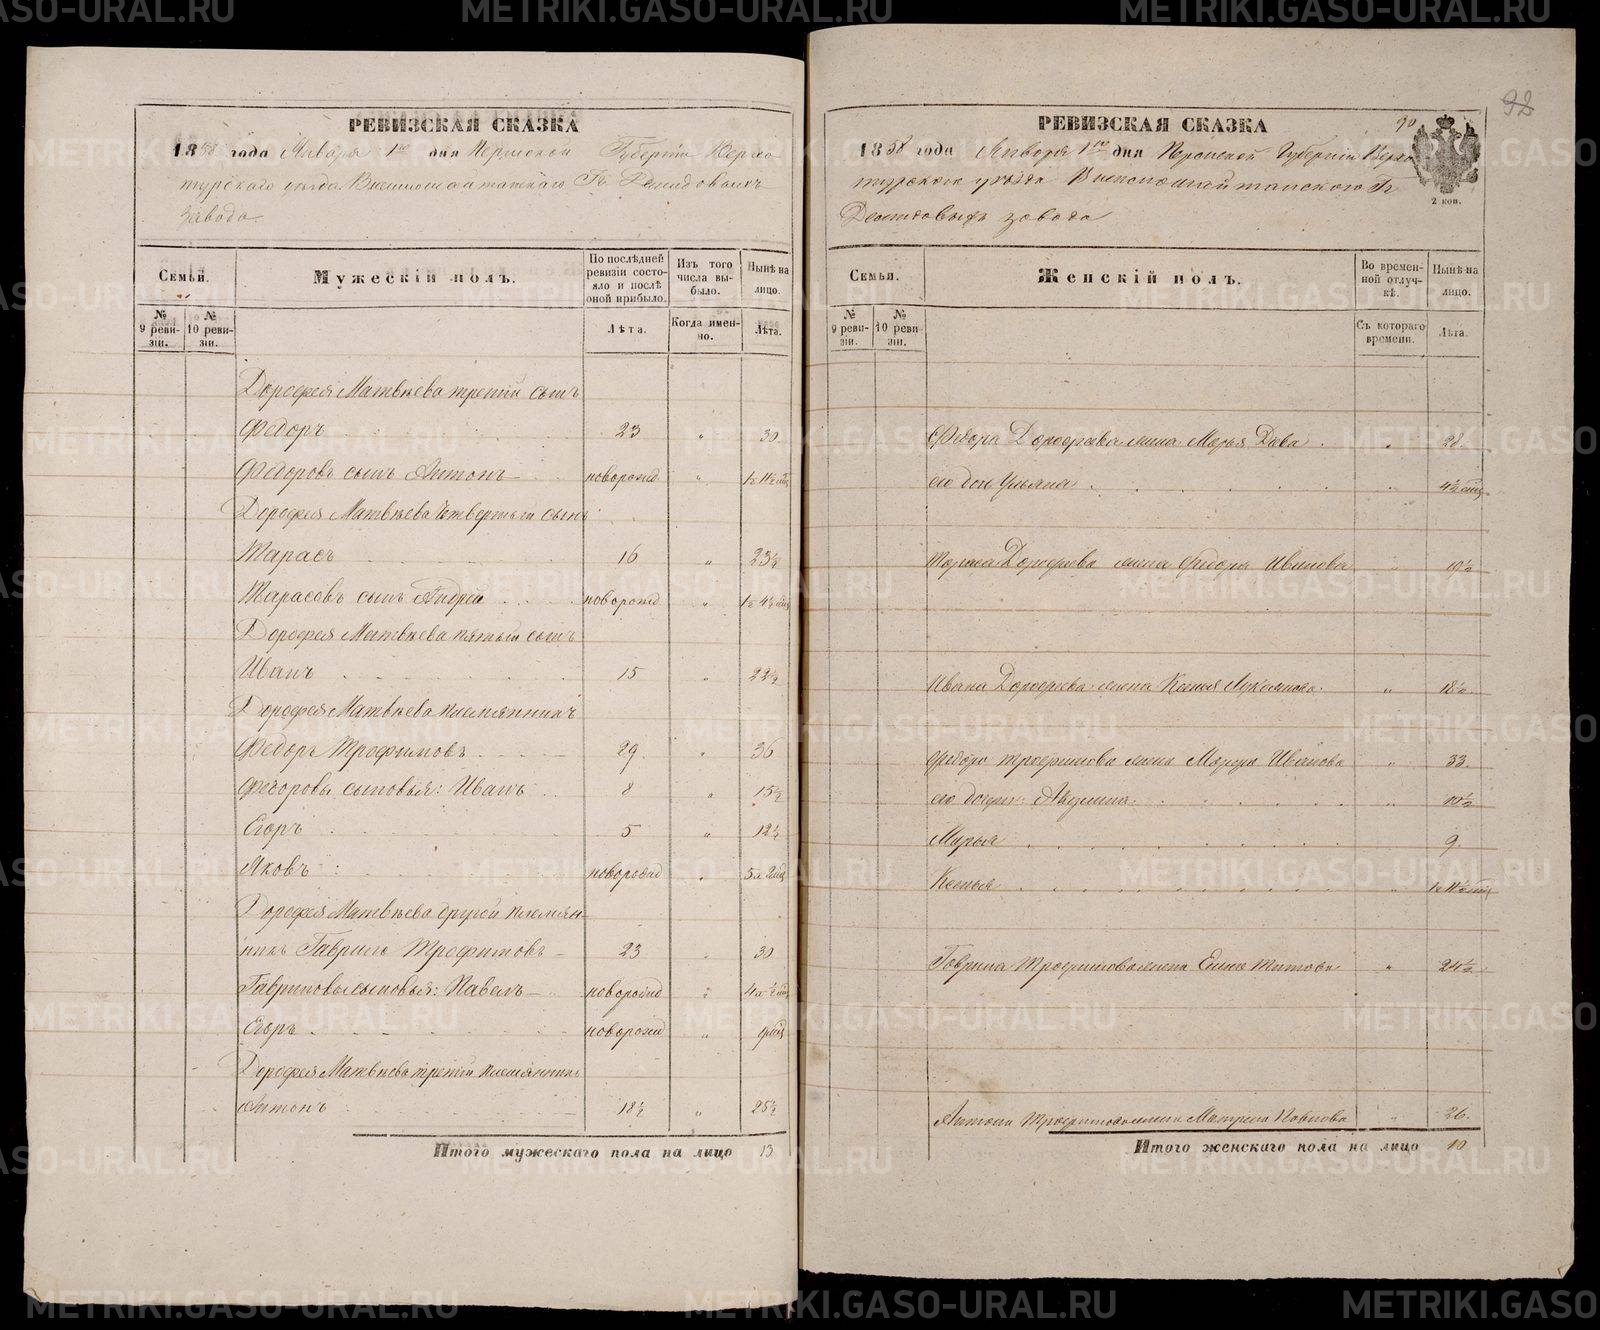 РЕВИЗСКАЯ СКАЗКА
1858 года Января 1го дня Пермской Губерніи Верхо
турскаго уѣзда Висимошайтанскаго Гг Демидовыхъ
завода
Семьи.
Мужескій полъ.
По послѣдней ревизіи состояло и послѣ оной прибыло.
Изъ того числа выбыло.
Нынѣ на лицо.
№ 9 ревизіи.
№ 10 ревизіи.
Лѣта.
Когда именно.
Лѣта.
Дорофея Матвѣева третій сынъ
Федоръ 23 „ 30
Федоровъ сынъ Антонъ новорожд „
Дорофея Матвѣева четвертый сынъ
Тарасъ 16 „ 23½
Тарасовъ сынъ Андрей новорожд „
Дорофея Матвѣева пятый сынъ
Иванъ 15 „ 22½
Дорофея Матвѣева племянникъ
Федоръ Трофимовъ 29 „ 36
Федоровы сыновья: Иванъ 8 „ 15½
Егоръ 5 „ 12½
Яковъ новорожд „
Дорофея Матвѣева другой племян-
никъ Гаврило Трофимовъ 23 „ 30
Гавриловы сыновья: Павелъ новорожд „
Егоръ новорожд „
Дорофея Матвѣева третій племянникъ
Антонъ 18½ „ 25½
Итого мужескаго пола на лицо 13
92
90
РЕВИЗСКАЯ СКАЗКА
1858 года Января 1го дня Пермской Губерніи Верхо
турскаго уѣзда Висимошайтанскаго Гг
Демидовыхъ завода
2 коп.
Семьи.
Женскій полъ.
Во временной отлучкѣ.
Нынѣ на лицо.
№ 9 ревизіи.
№ 10 ревизіи.
Съ котораго времени.
Лѣта.
Федора Дорофѣева жена Марья „ 28
его дочь Ульяна
Тараса Дорофѣева жена Федора Иванова
Ивана Дорофѣева жена Ксенья Лукьянова „ 18½
Федора Трофимова жена Марфа Иванова „ 33
его дочери: Акулина „ 10½
Марья 9
Ксенья
Гаврила Трофимова жена Елена Титова „ 24½
Антона Трофимова жена Матрена Павлова „ 26
Итого женскаго пола на лицо 10
METRIKI.GASO-URAL.RU